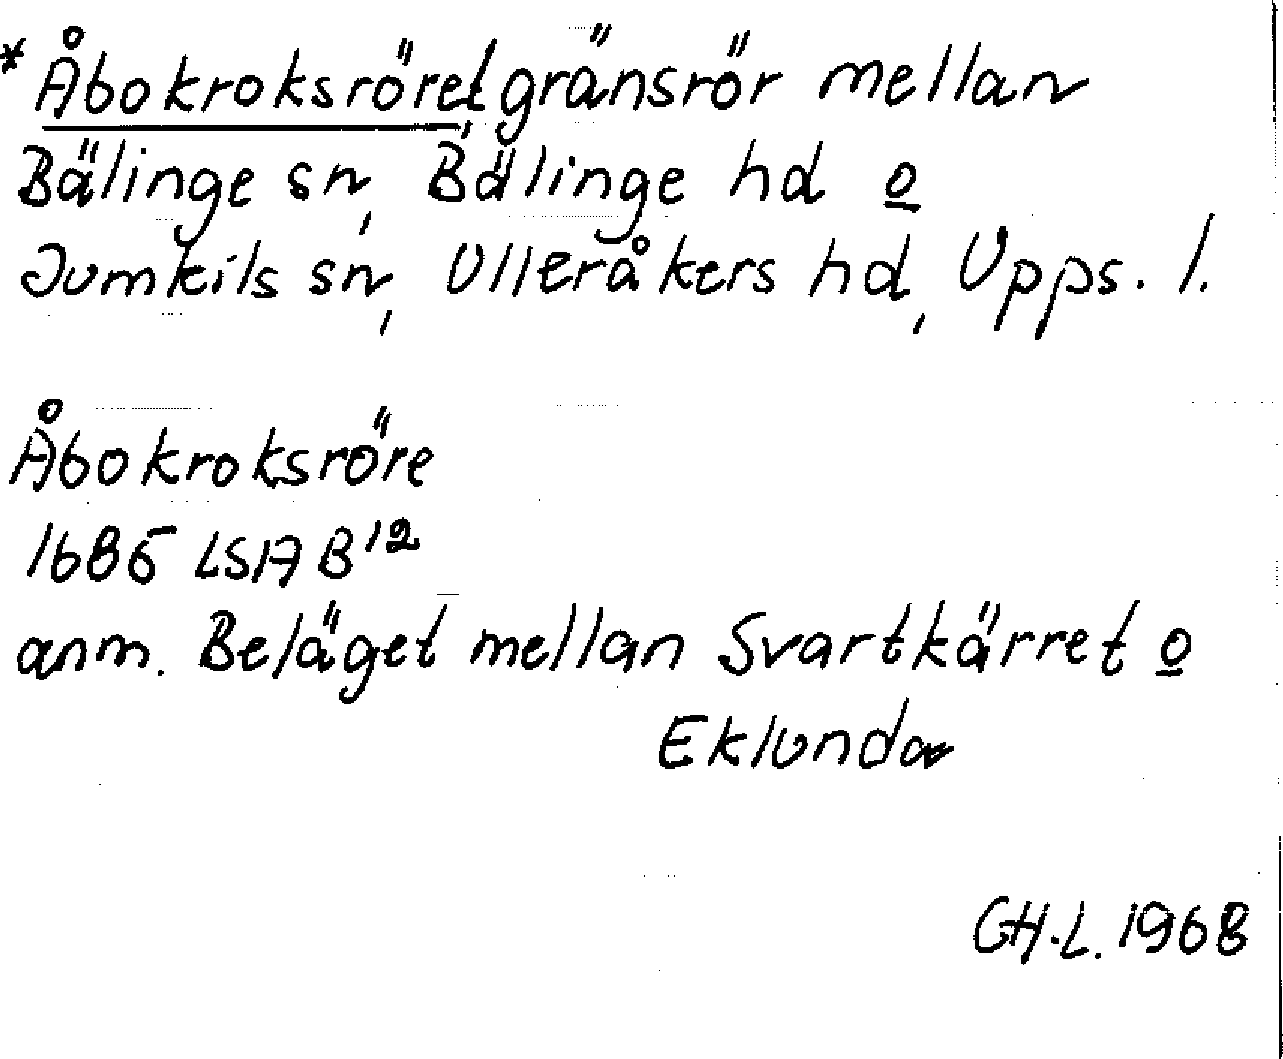 *Åbokroksröret, gränsrör mellan
Bälinge sn, Bälinge hd o
Jumkils sn, Ulleråkers hd, Upps. l.
Åbokroksröre
1685 LSA B12
anm. Beläget mellan Svartkärret o
Eklunda
GH.L. 1968